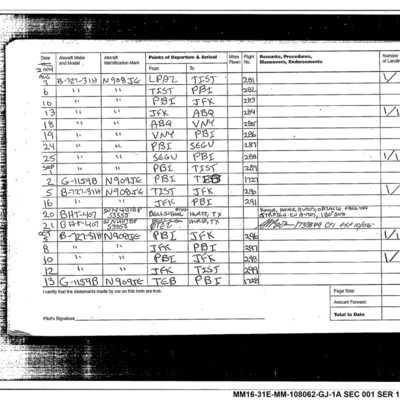 Date Aircraft Make and Model Aircraft Identification Mark Points of Departure & Arrival Miles Flown Flight No. Remarks, Procedures, Maneuvers, Endorsements Number of Landings
2004 From To
AUG 3 B-727-31H N908JE LPAZ TIST 281 1/
6 " " TIST PBI 282
10 " " PBI JFK 283
13 " " JFK ABQ 284 1/1
18 " " ABQ VNY 285
19 " " VNY PBI 286
24 " " PBI SEGU 287
25 " " SEGU PBI 288 1/1
SEP 1 " " PBI TIST 289
2 G-1159B N909JE PBI TEB 1721
5 B-727-31H N908JE TIST JFK 290 1/
16 " " JFK PBI 291
20 BHT-407 BELLSCHOOL HURST, TX
21 BHT-407 HURST, TX
OCT 5 B-727-31H N908JE PBI JFK 296 1/1
8 " " JFK PBI 297
10 " " PBI JFK 298 1/
12 " " JFK TIST 299
13 G-1159B N909JE TEB PBI
I certify that the statements made by me on this form are true. Page Total
Amount Forward
Pilot's Signature Total to Date
MM16-31E-MM-108062-GJ-1A SEC 001 SER 1